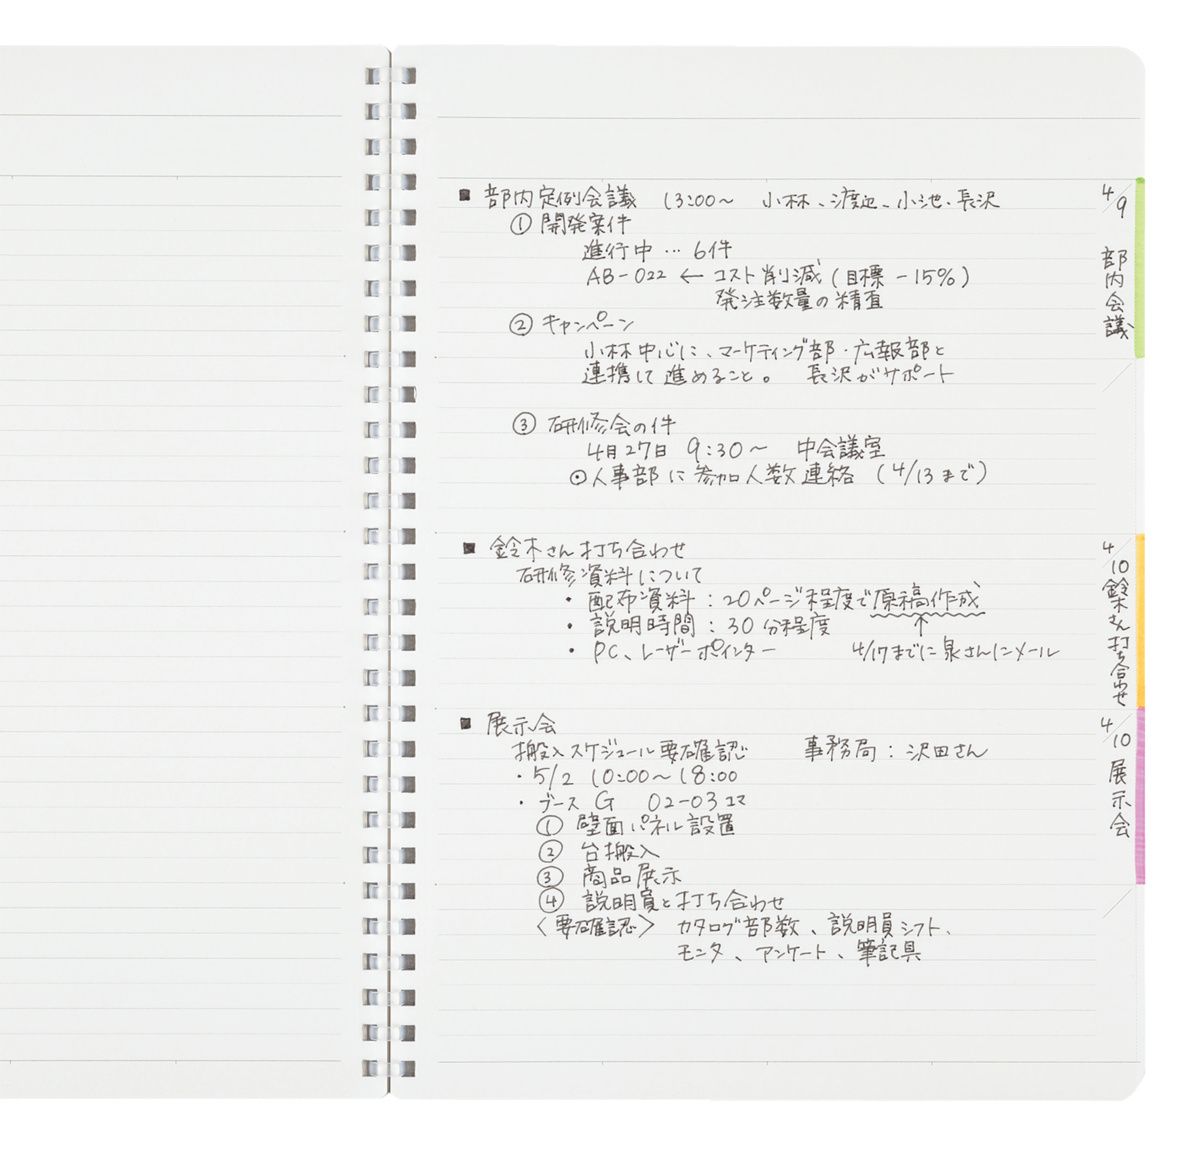 ■ 部内定例会議 13:00〜 小林、渡辺、小池、長沢
① 開発案件
進行中 … 6件
AB-022 ← コスト削減(目標 -15%)
発注数量の精査
② キャンペーン
小林中心に、マーケティング部・広報部と
連携して進めること。 長沢がサポート
③ 研修会の件
4月27日 9:30〜 中会議室
⊙人事部に参加人数連絡 (4/13まで)
■ 鈴木さん打ち合わせ
研修資料について
・ 配布資料:20ページ程度で原稿作成
・ 説明時間:30分程度 ↑
・ PC、レーザーポインター 4/17までに泉さんにメール
■ 展示会
搬入スケジュール要確認 事務局:沢田さん
・5/2 10:00〜18:00
・ブース G 02-03コマ
① 壁面パネル設置
② 台搬入
③ 商品展示
④ 説明員と打ち合わせ
〈要確認〉 カタログ部数、説明員シフト、
モニタ、アンケート、筆記具
4/9 部内会議
4/10 鈴木さん打ち合わせ
4/10 展示会